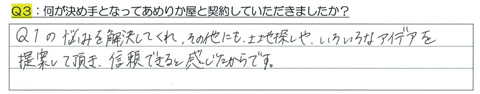 Q3：何が決め手となってあめりか屋と契約していただきましたか？
Q1の悩みを解決してくれ、その他にも、土地探しや、いろいろなアイデアを
提案して頂き、信頼できると感じたからです。